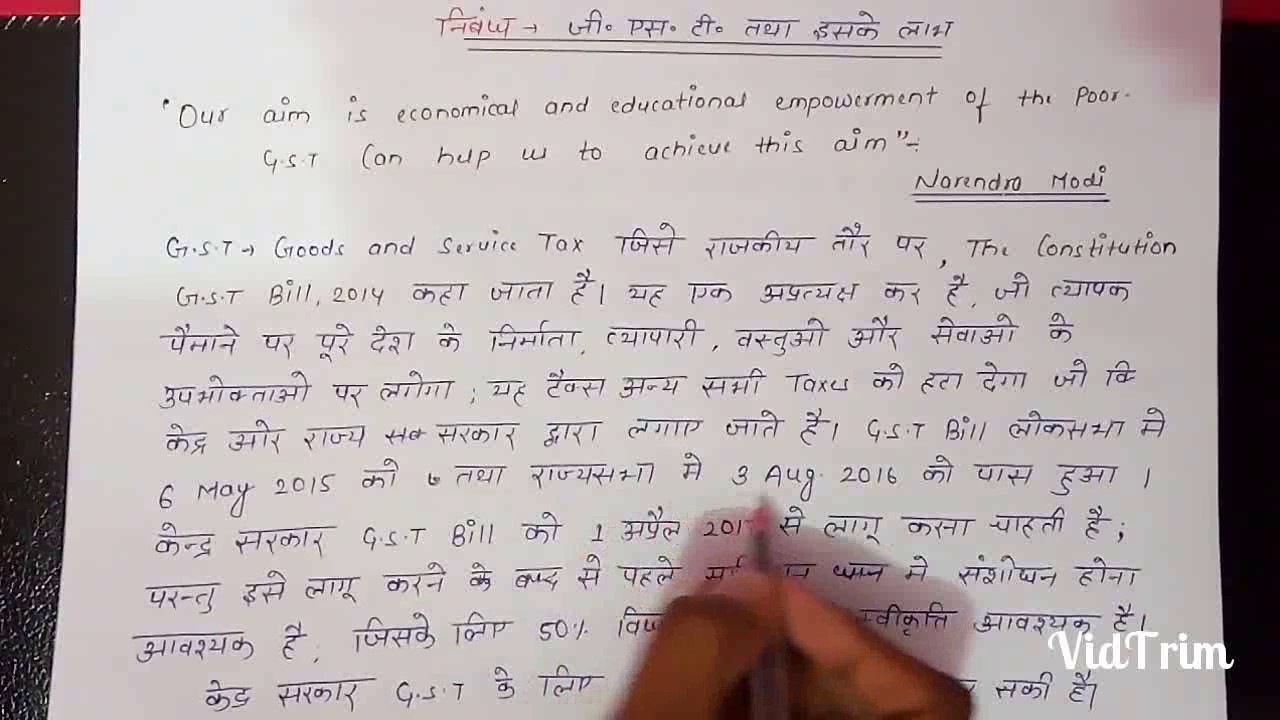 निबंध → जी॰ एस॰ टी॰ तथा इसके लाभ
"Our aim is economical and educational empowerment of the Poor.
G.S.T Can help us to achieve this aim" ÷
Narendra Modi
G.S.T → Goods and Service Tax जिसे राजकीय तौर पर, The Constitution
G.S.T Bill, 2014 कहा जाता है। यह एक अप्रत्यक्ष कर है, जो व्यापक
पैमाने पर पूरे देश के निर्माता, व्यापारी, वस्तुओ और सेवाओ के
उपभोक्ताओ पर लगेगा; यह टैक्स अन्य सभी Taxes को हटा देगा जो कि
केद्र ओर राज्य सरकार द्वारा लगाए जाते है। G.S.T Bill लोकसभा मे
6 May 2015 को तथा राज्यसभा मे 3 Aug. 2016 को पास हुआ।
केन्द्र सरकार G.S.T Bill को 1 अप्रैल से लागू करना चाहती है;
परन्तु इसे लागू करने के से पहले मे संशोधन होना
आवश्यक है, जिसके लिए 50% स्वीकृति आवश्यक है।
केद्र सरकार G.S.T के लिए सकी है।
VidTrim